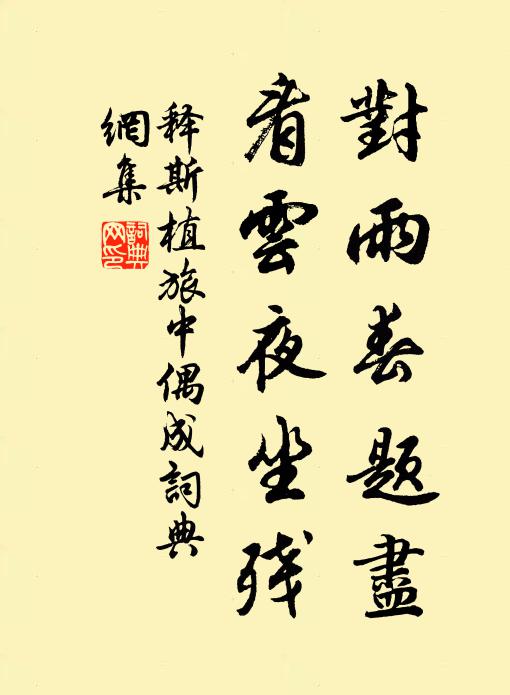 對雨春題盡
看雲夜坐残
释斯植旅中偶成詞典
網集
詞典
网印